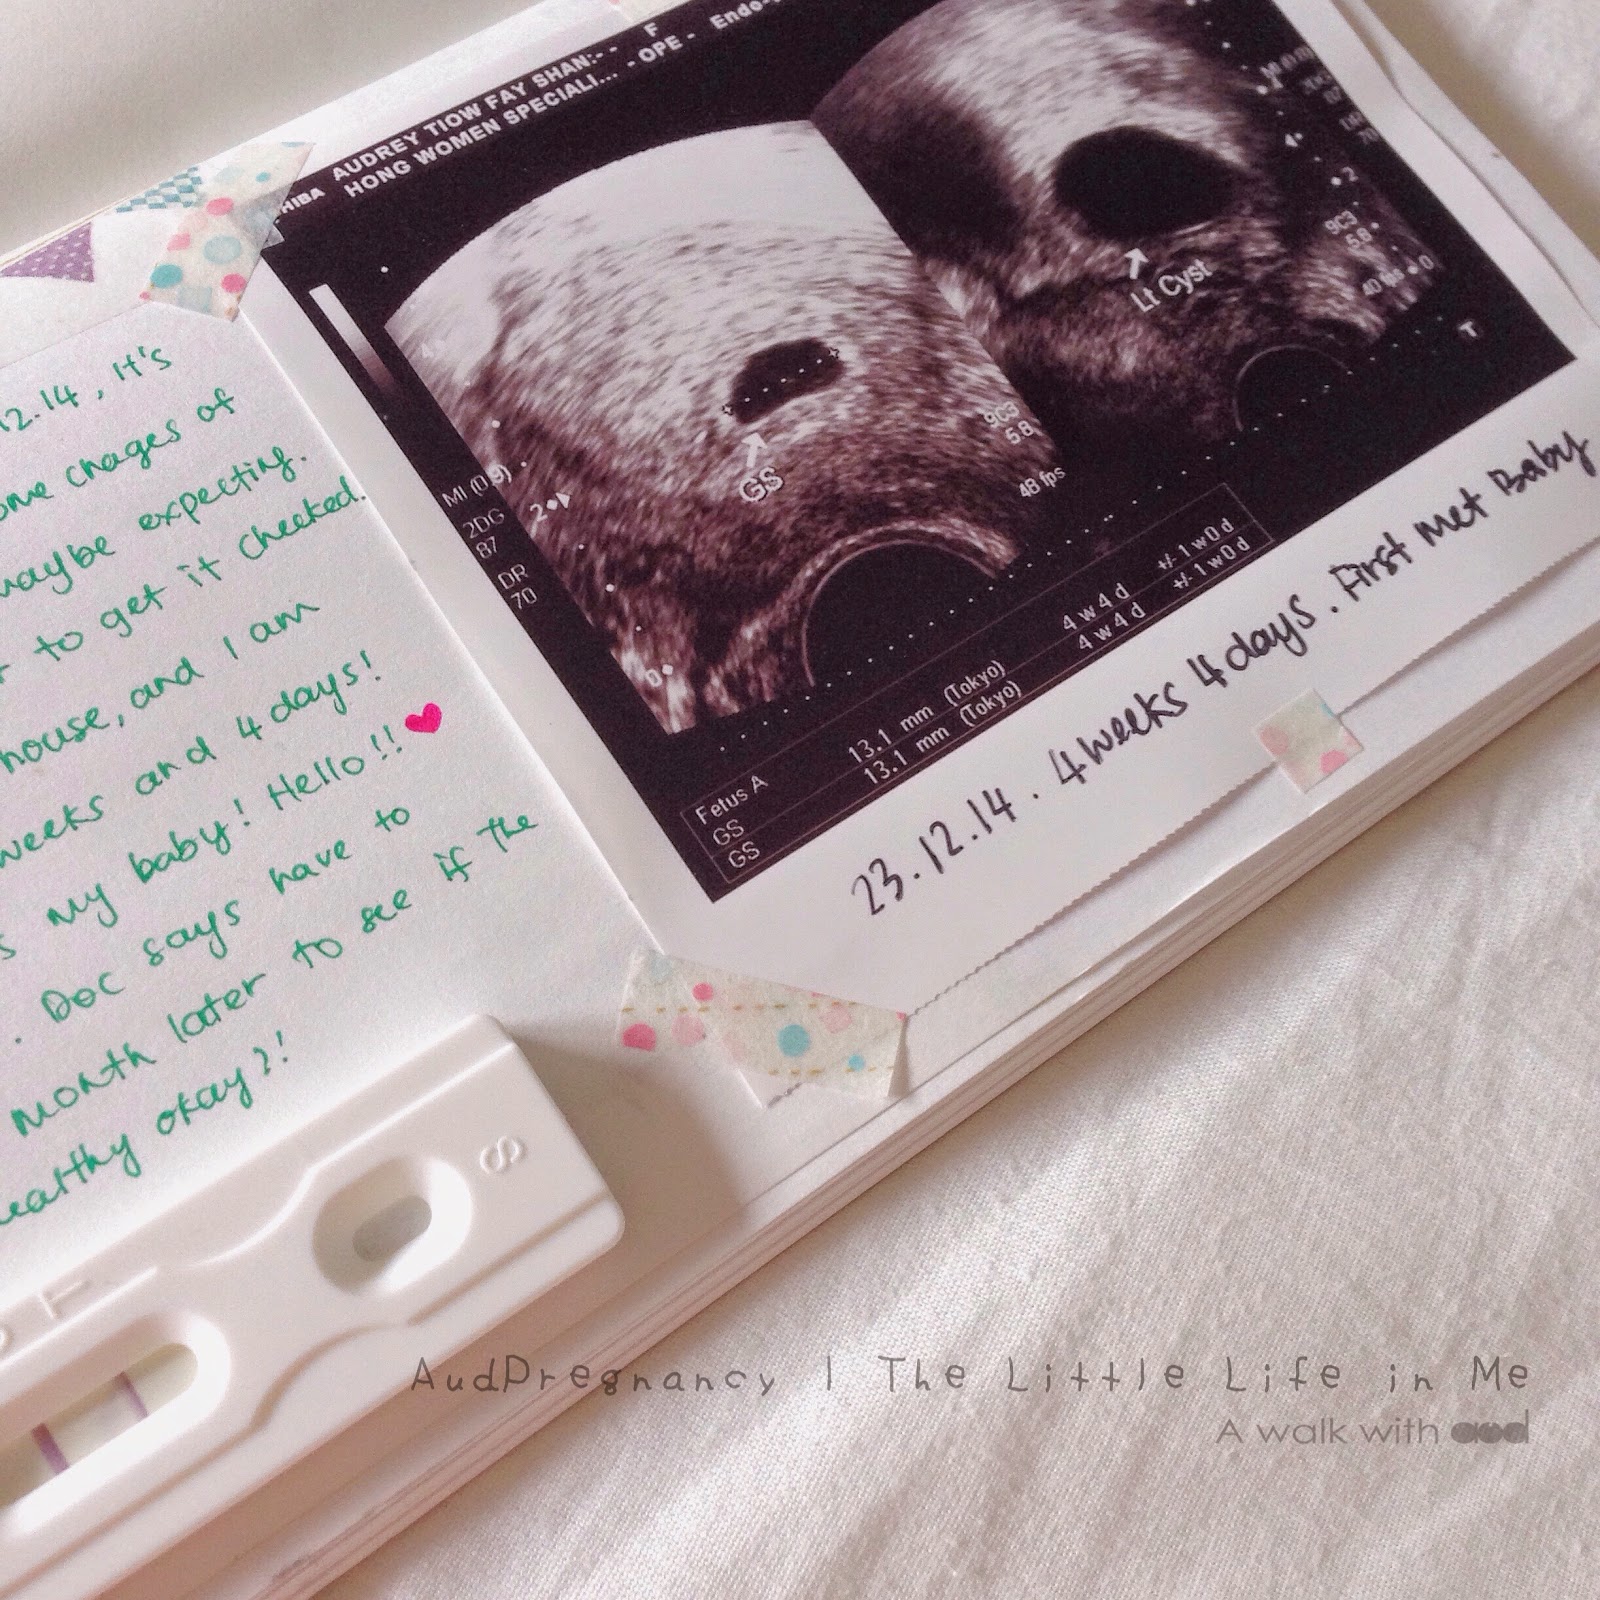 12.14, it's
chages of
maybe expecting.
to get it checked.
house, and I am
weeks and 4 days!
my baby! Hello!!
. Doc says have to
month later to see if the
healthy okay?!
AUDREY TIOW FAY SHAN:- - F
HONG WOMEN SPECIALI... - OPE - Endo-
4
MI (0.9)
2DG
87
DR
70
2
0
GS
9C3
5.8
48 fps
Lt Cyst
4
2
9C3
5.8
40 fps
0
T
Fetus A
GS 13.1 mm (Tokyo) 4w4d +/- 1w0d
GS 13.1 mm (Tokyo) 4w4d +/- 1w0d
23.12.14 . 4 weeks 4 days . First Met Baby
S
T
AudPregnancy | The Little Life in Me
A walk with aud